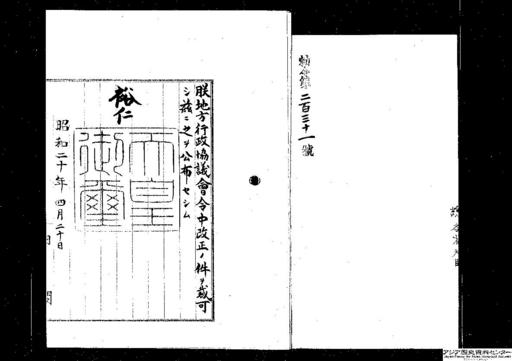 勅令第二百三十一號
朕地方行政協議會令中改正ノ件ヲ裁可
シ茲ニ之ヲ公布セシム
裕仁
天皇
御璽
昭和二十年四月二十日
アジア歴史資料センター